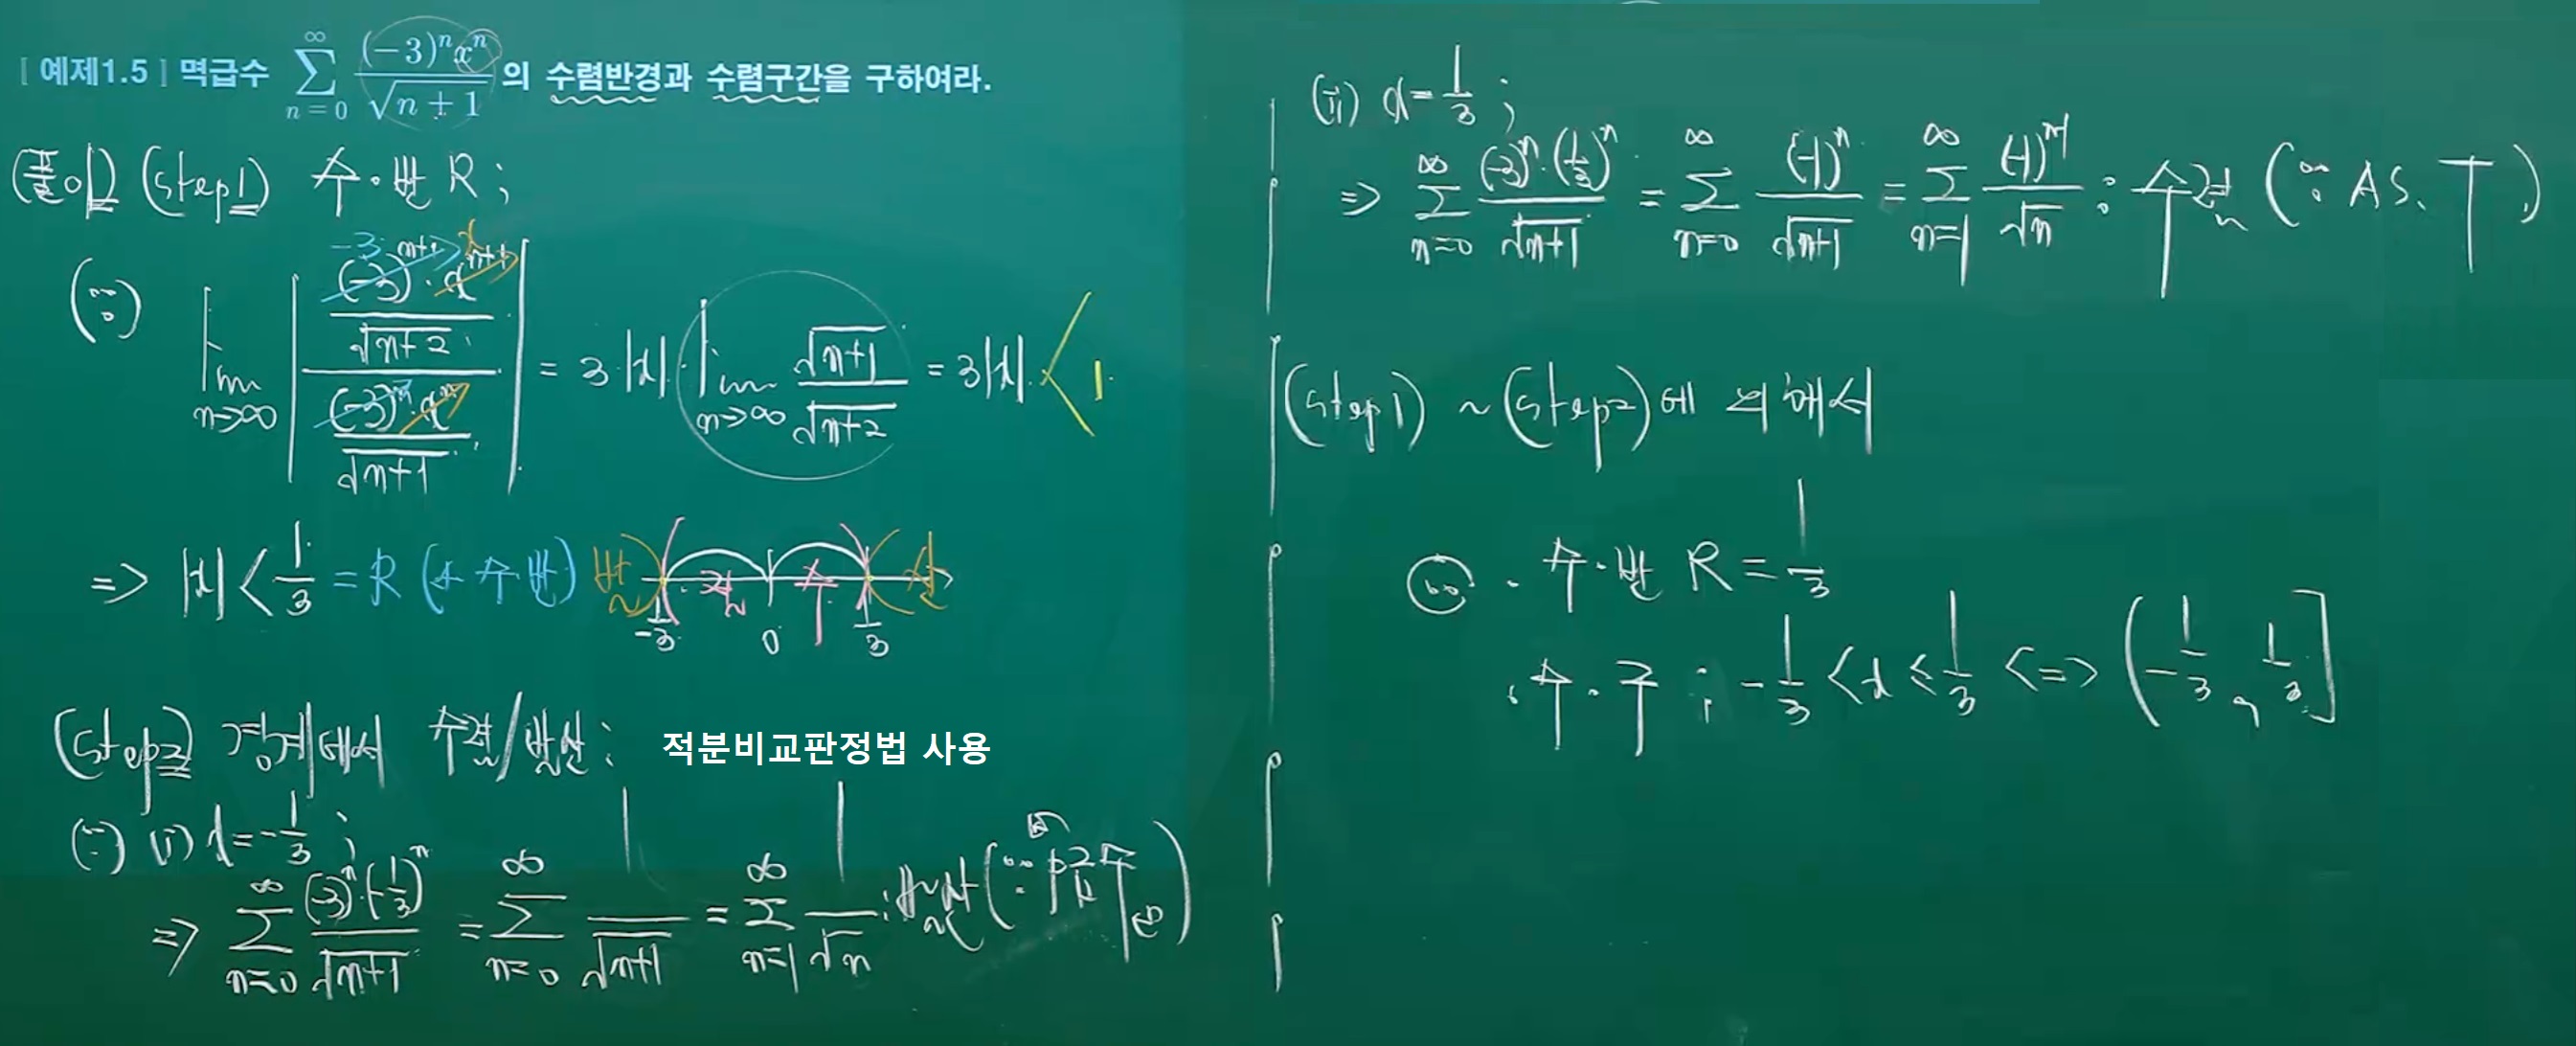 [ 예제1.5 ] 멱급수 \sum_{n=0}^{\infty} \frac{(-3)^n x^n}{\sqrt{n+1}} 의 수렴반경과 수렴구간을 구하여라.
(풀이) (step1) 수·반 R ;
(∵) \lim_{n→∞} | \frac{\frac{(-3)^{n+1}·x^{n+1}}{\sqrt{n+2}}}{\frac{(-3)^n·x^n}{\sqrt{n+1}}} | = 3·|x|·\lim_{n→∞} \frac{\sqrt{n+1}}{\sqrt{n+2}} = 3|x| < 1
-3 x
⇒ |x| < \frac{1}{3} = R (수·반) 발 수렴 산
-\frac{1}{3} 0 \frac{1}{3}
(step2) 경계에서 수렴/발산 ; 적분비교판정법 사용
(∵) (i) x = -\frac{1}{3} ;
⇒ \sum_{n=0}^{∞} \frac{(-3)^n·(-\frac{1}{3})^n}{\sqrt{n+1}} = \sum_{n=0}^{∞} \frac{1}{\sqrt{n+1}} = \sum_{n=1}^{∞} \frac{1}{\sqrt{n}} : 발산 (∵ p급수)
(ii) x = \frac{1}{3} ;
⇒ \sum_{n=0}^{∞} \frac{(-3)^n·(\frac{1}{3})^n}{\sqrt{n+1}} = \sum_{n=0}^{∞} \frac{(-1)^n}{\sqrt{n+1}} = \sum_{n=1}^{∞} \frac{(-1)^{n-1}}{\sqrt{n}} : 수렴 (∵ A.S.T.)
(step1) ~ (step2)에 의해서
∴ · 수·반 R = \frac{1}{3}
· 수·구 ; -\frac{1}{3} < x ≤ \frac{1}{3} <=> (-\frac{1}{3}, \frac{1}{3}]